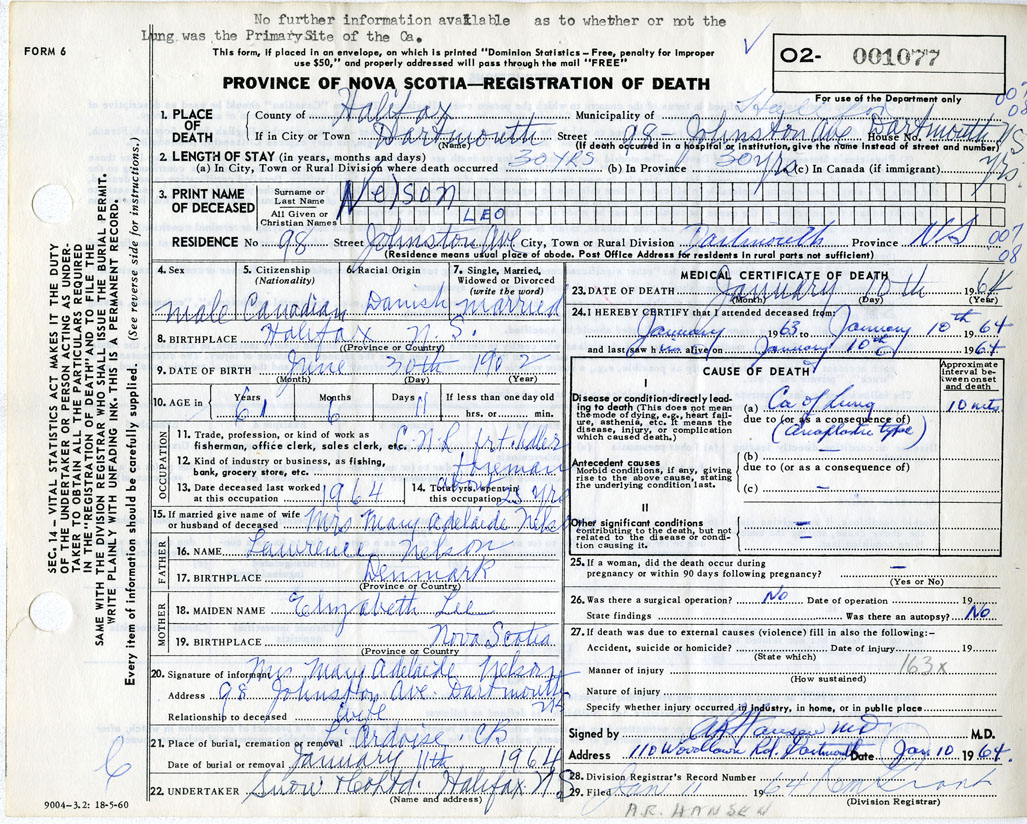 No further information available as to whether or not the
Lung was the Primary Site of the Ca.
FORM 6
This form, if placed in an envelope, on which is printed "Dominion Statistics – Free, penalty for improper
use $50," and properly addressed will pass through the mail "FREE"
O2- 001077
For use of the Department only
PROVINCE OF NOVA SCOTIA—REGISTRATION OF DEATH
1. PLACE OF DEATH
County of Halifax Municipality of
If in City or Town Dartmouth Street 98 - Johnston Ave Dartmouth N.S House No.
(Name) (If death occurred in a hospital or institution, give the name instead of street and number)
2. LENGTH OF STAY (in years, months and days)
(a) In City, Town or Rural Division where death occurred 30 YRS (b) In Province 30 yrs (c) In Canada (if immigrant) yrs.
3. PRINT NAME OF DECEASED
Surname or Last Name Nelson
All Given or Christian Names LEO
RESIDENCE No 98 Street Johnston Ave City, Town or Rural Division Dartmouth Province N.S
007
08
(Residence means usual place of abode. Post Office Address for residents in rural parts not sufficient)
4. Sex male
5. Citizenship (Nationality) Canadian
6. Racial Origin Danish
7. Single, Married, Widowed or Divorced (write the word) married
8. BIRTHPLACE Halifax N.S.
(Province or Country)
9. DATE OF BIRTH June 30th 1902
(Month) (Day) (Year)
10. AGE in Years 61 Months 6 Days 11 If less than one day old hrs. or min.
OCCUPATION
11. Trade, profession, or kind of work as fisherman, office clerk, sales clerk, etc. C.N.R
12. Kind of industry or business, as fishing, bank, grocery store, etc foreman
13. Date deceased last worked at this occupation 1964
14. Total yrs. spent in this occupation about 25 Yrs
15. If married give name of wife or husband of deceased Mrs Mary Adelaide Nelson
FATHER
16. NAME Lawrence Nelson
17. BIRTHPLACE Denmark
(Province or Country)
MOTHER
18. MAIDEN NAME Elizabeth Lee
19. BIRTHPLACE Nova Scotia
(Province or Country)
20. Signature of informant Mrs Mary Adelaide Nelson
Address 98 Johnston Ave. Dartmouth NS
Relationship to deceased wife
21. Place of burial, cremation or removal L'Ardoise, CB
Date of burial or removal January 11th 1964
22. UNDERTAKER Snow & Co Ltd. Halifax N.S
(Name and address)
9004–3.2: 18-5-60
MEDICAL CERTIFICATE OF DEATH
23. DATE OF DEATH January 10th 1964
(Month) (Day) (Year)
24. I HEREBY CERTIFY that I attended deceased from:
January 1963 to January 10th 1964
and last saw him alive on January 10th 1964
CAUSE OF DEATH
Approximate interval between onset and death
I
Disease or condition directly leading to death (This does not mean the mode of dying, e.g., heart failure, asthenia, etc. It means the disease, injury, or complication which caused death.)
(a) Ca of Lung 10 mts
due to (or as a consequence of)
(Anaplastic type)
Antecedent causes
Morbid conditions, if any, giving rise to the above cause, stating the underlying condition last.
(b) –
due to (or as a consequence of)
(c) –
II
Other significant conditions
contributing to the death, but not related to the disease or condition causing it.
25. If a woman, did the death occur during pregnancy or within 90 days following pregnancy? –
(Yes or No)
26. Was there a surgical operation? No Date of operation 19
State findings Was there an autopsy? No
27. If death was due to external causes (violence) fill in also the following:–
Accident, suicide or homicide? Date of injury 19
(State which)
163x
Manner of injury
(How sustained)
Nature of injury
Specify whether injury occurred in industry, in home, or in public place
Signed by AR Hansen MD M.D.
Address 110 Woodlawn Rd. Dartmouth Date Jan 10 1964
28. Division Registrar's Record Number
29. Filed Jan 11 1964
(Division Registrar)
A.R. HANSEN
SEC. 14 – VITAL STATISTICS ACT MAKES IT THE DUTY
OF THE UNDERTAKER OR PERSON ACTING AS UNDER-
TAKER TO OBTAIN ALL THE PARTICULARS REQUIRED
IN THE "REGISTRATION OF DEATH" AND TO FILE THE
SAME WITH THE DIVISION REGISTRAR WHO SHALL ISSUE THE BURIAL PERMIT.
WRITE PLAINLY WITH UNFADING INK. THIS IS A PERMANENT RECORD.
Every item of information should be carefully supplied. (See reverse side for instructions.)